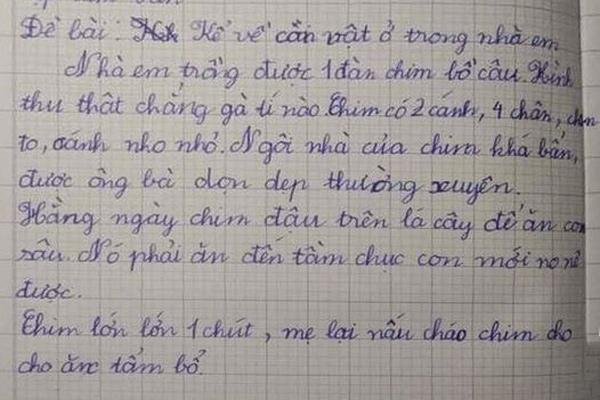 Đề bài: Kể về cần vật ở trong nhà em
Nhà em trồng được 1 đàn chim bồ câu. Hình
thu thật chẳng gà tí nào. Chim có 2 cánh, 4 chân, chân
to, cánh nho nhỏ. Ngôi nhà của chim khá bẩn,
được ông bà dọn dẹp thường xuyên.
Hằng ngày chim đậu trên lá cây để ăn con
sâu. Nó phải ăn đến tầm chục con mới no nê
được.
Chim lớn lớn 1 chút, mẹ lại nấu cháo chim cho
cho ăn tẩm bổ.